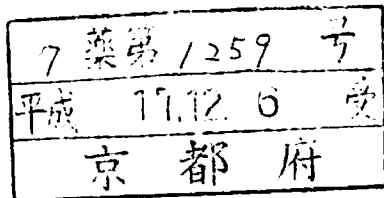 7 薬第 1259 号
平成 17.12. 6 受
京都府